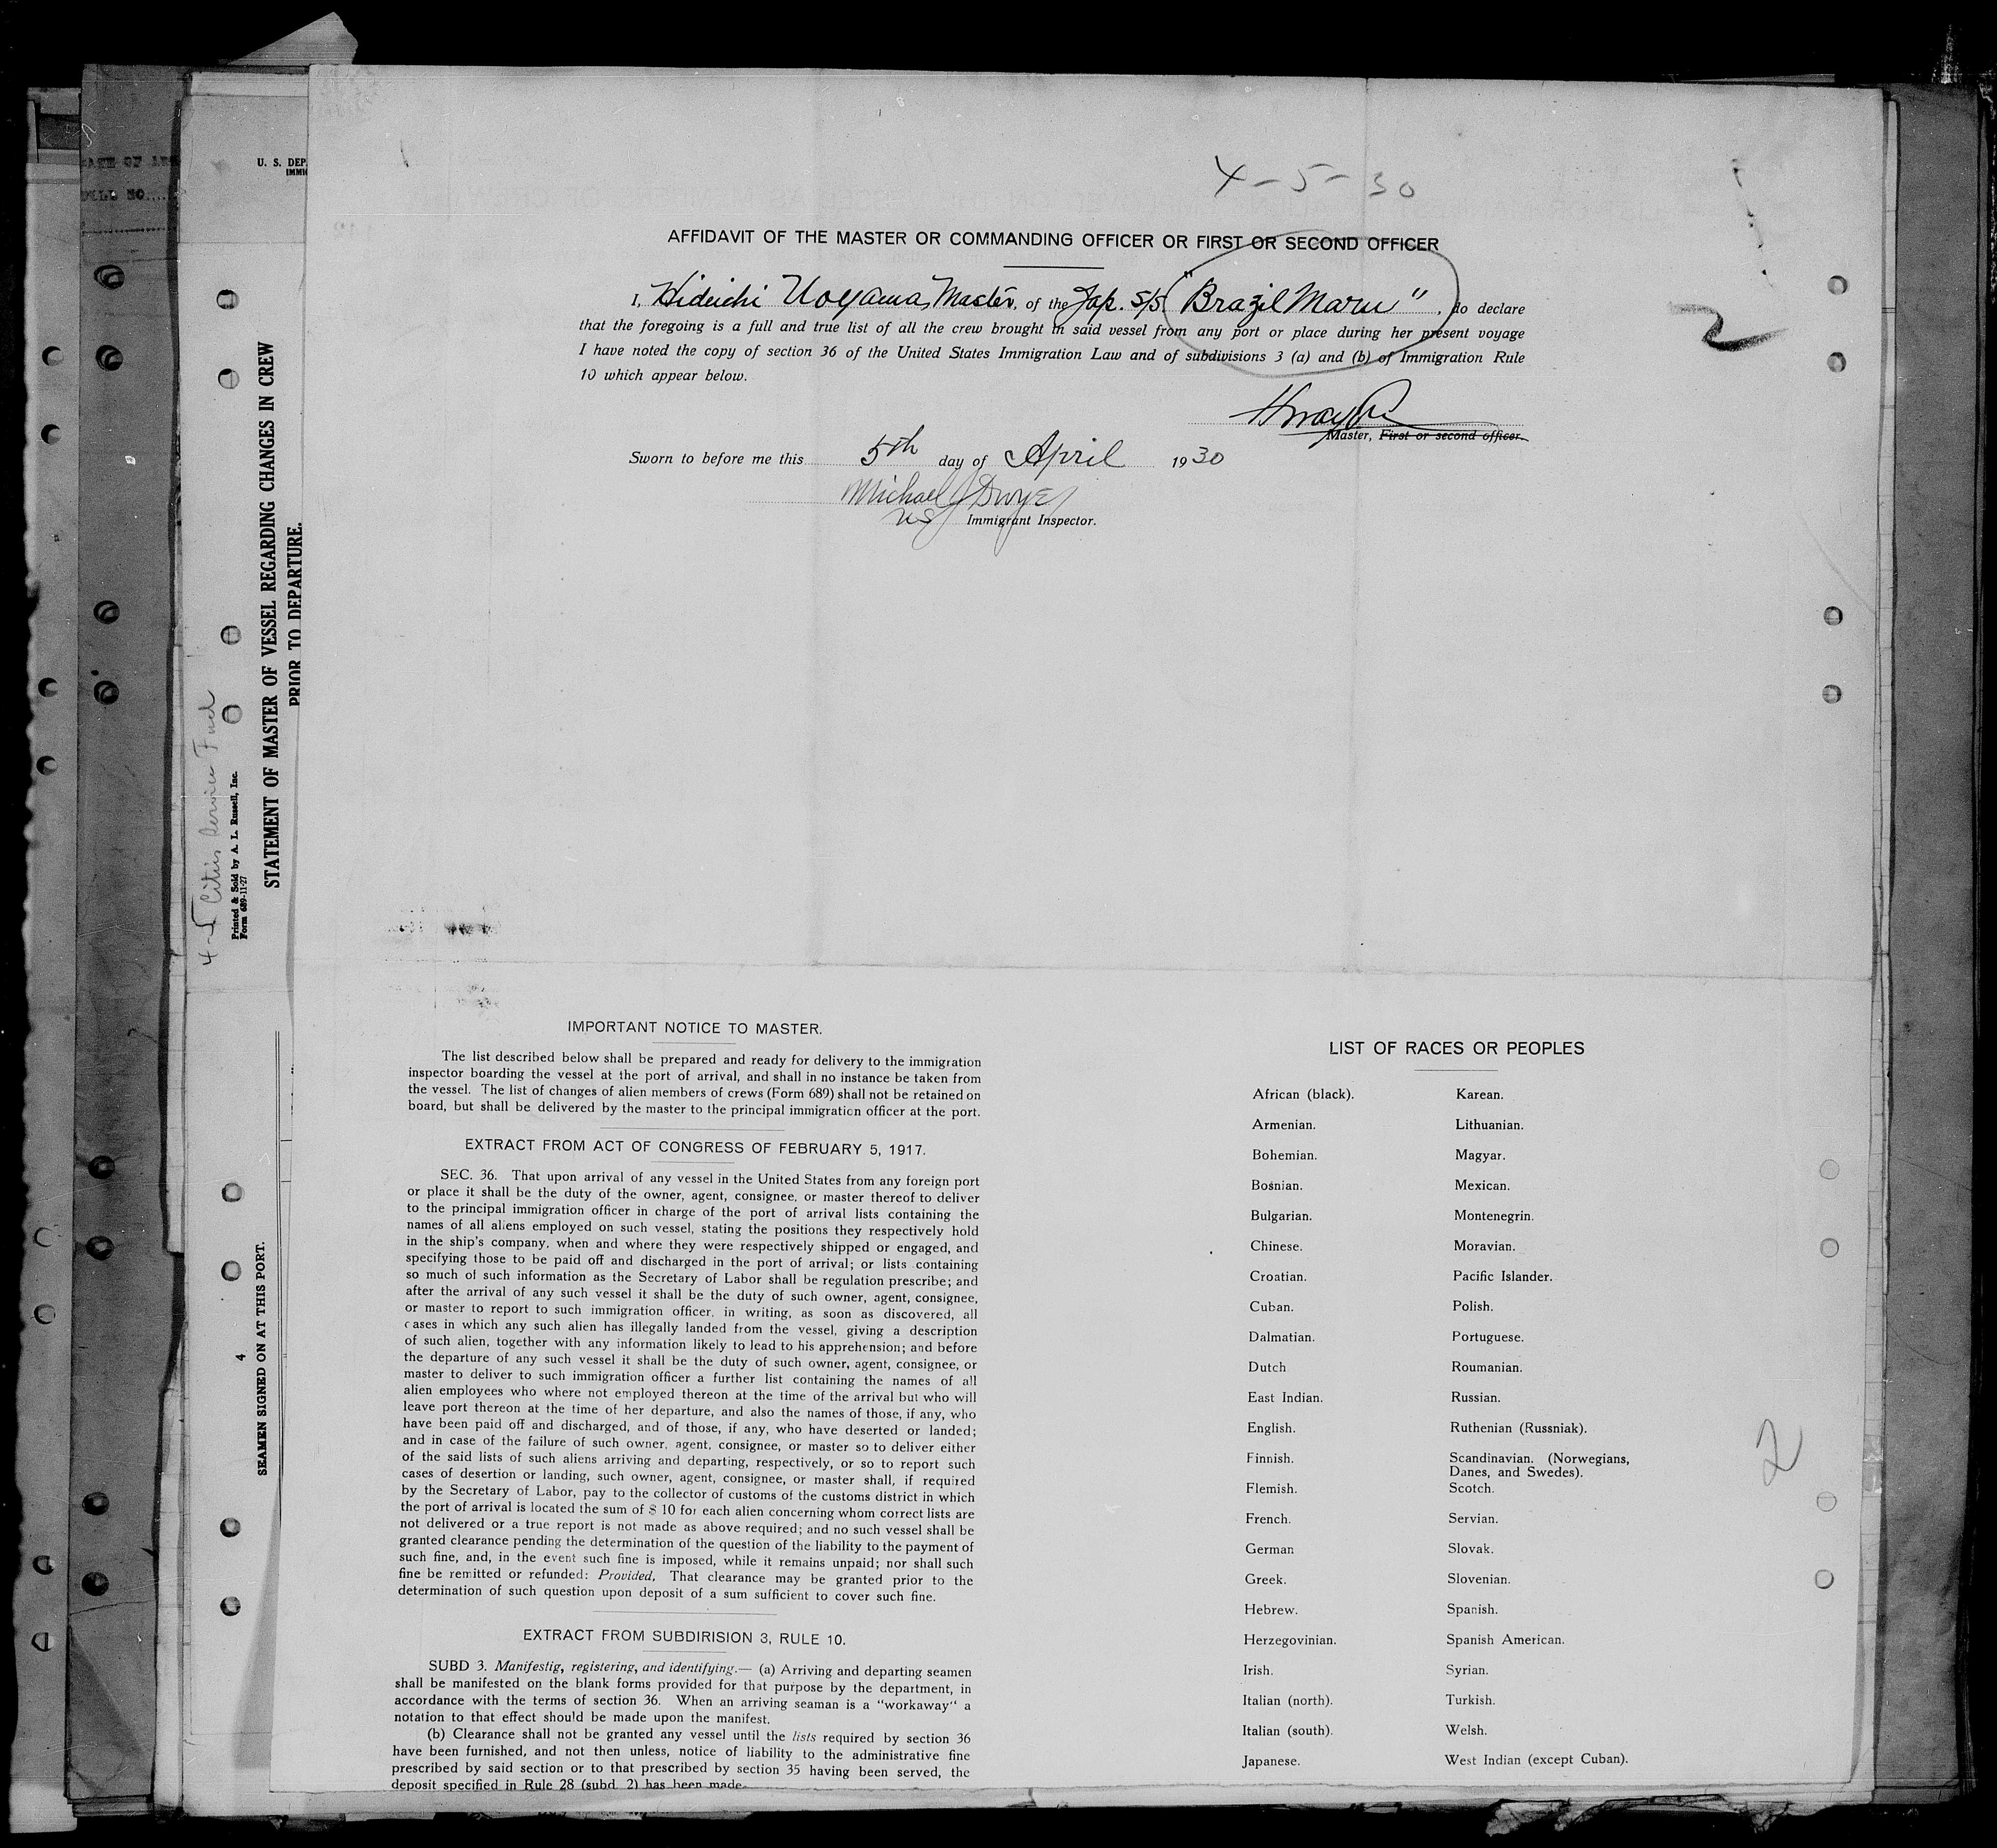 4-5-30
AFFIDAVIT OF THE MASTER OR COMMANDING OFFICER OR FIRST OR SECOND OFFICER
I, Hideichi Uoyama, Master, of the Jap. S/S "Brazil Maru", do declare
that the foregoing is a full and true list of all the crew brought in said vessel from any port or place during her present voyage
I have noted the copy of section 36 of the United States Immigration Law and of subdivisions 3 (a) and (b) of Immigration Rule
10 which appear below.
2
Master, First or second officer.
Sworn to before me this 5th day of April 1930
Michael J Dwyer
US Immigrant Inspector.
IMPORTANT NOTICE TO MASTER.
The list described below shall be prepared and ready for delivery to the immigration
inspector boarding the vessel at the port of arrival, and shall in no instance be taken from
the vessel. The list of changes of alien members of crews (Form 689) shall not be retained on
board, but shall be delivered by the master to the principal immigration officer at the port.
EXTRACT FROM ACT OF CONGRESS OF FEBRUARY 5, 1917.
SEC. 36. That upon arrival of any vessel in the United States from any foreign port
or place it shall be the duty of the owner, agent, consignee, or master thereof to deliver
to the principal immigration officer in charge of the port of arrival lists containing the
names of all aliens employed on such vessel, stating the positions they respectively hold
in the ship's company, when and where they were respectively shipped or engaged, and
specifying those to be paid off and discharged in the port of arrival; or lists containing
so much of such information as the Secretary of Labor shall be regulation prescribe; and
after the arrival of any such vessel it shall be the duty of such owner, agent, consignee,
or master to report to such immigration officer, in writing, as soon as discovered, all
cases in which any such alien has illegally landed from the vessel, giving a description
of such alien, together with any information likely to lead to his apprehension; and before
the departure of any such vessel it shall be the duty of such owner, agent, consignee, or
master to deliver to such immigration officer a further list containing the names of all
alien employees who where not employed thereon at the time of the arrival but who will
leave port thereon at the time of her departure, and also the names of those, if any, who
have been paid off and discharged, and of those, if any, who have deserted or landed;
and in case of the failure of such owner, agent, consignee, or master so to deliver either
of the said lists of such aliens arriving and departing, respectively, or so to report such
cases of desertion or landing, such owner, agent, consignee, or master shall, if required
by the Secretary of Labor, pay to the collector of customs of the customs district in which
the port of arrival is located the sum of $ 10 for each alien concerning whom correct lists are
not delivered or a true report is not made as above required; and no such vessel shall be
granted clearance pending the determination of the question of the liability to the payment of
such fine, and, in the event such fine is imposed, while it remains unpaid; nor shall such
fine be remitted or refunded: Provided, That clearance may be granted prior to the
determination of such question upon deposit of a sum sufficient to cover such fine.
EXTRACT FROM SUBDIRISION 3, RULE 10.
SUBD 3. Manifestig, registering, and identifying.— (a) Arriving and departing seamen
shall be manifested on the blank forms provided for that purpose by the department, in
accordance with the terms of section 36. When an arriving seaman is a "workaway" a
notation to that effect should be made upon the manifest.
(b) Clearance shall not be granted any vessel until the lists required by section 36
have been furnished, and not then unless, notice of liability to the administrative fine
prescribed by said section or to that prescribed by section 35 having been served, the
deposit specified in Rule 28 (subd. 2) has been made.
LIST OF RACES OR PEOPLES
African (black). Karean.
Armenian. Lithuanian.
Bohemian. Magyar.
Bosnian. Mexican.
Bulgarian. Montenegrin.
Chinese. Moravian.
Croatian. Pacific Islander.
Cuban. Polish.
Dalmatian. Portuguese.
Dutch Roumanian.
East Indian. Russian.
English. Ruthenian (Russniak).
Finnish. Scandinavian. (Norwegians,
Danes, and Swedes).
Flemish. Scotch.
French. Servian.
German Slovak.
Greek. Slovenian.
Hebrew. Spanish.
Herzegovinian. Spanish American.
Irish. Syrian.
Italian (north). Turkish.
Italian (south). Welsh.
Japanese. West Indian (except Cuban).
2
U. S. DEP
IMMI
4-5 Cities Service Fuel
Printed & Sold by A. L. Russell, Inc.
Form 689-11-27
STATEMENT OF MASTER OF VESSEL REGARDING CHANGES IN CREW
PRIOR TO DEPARTURE.
4
SEAMEN SIGNED ON AT THIS PORT.